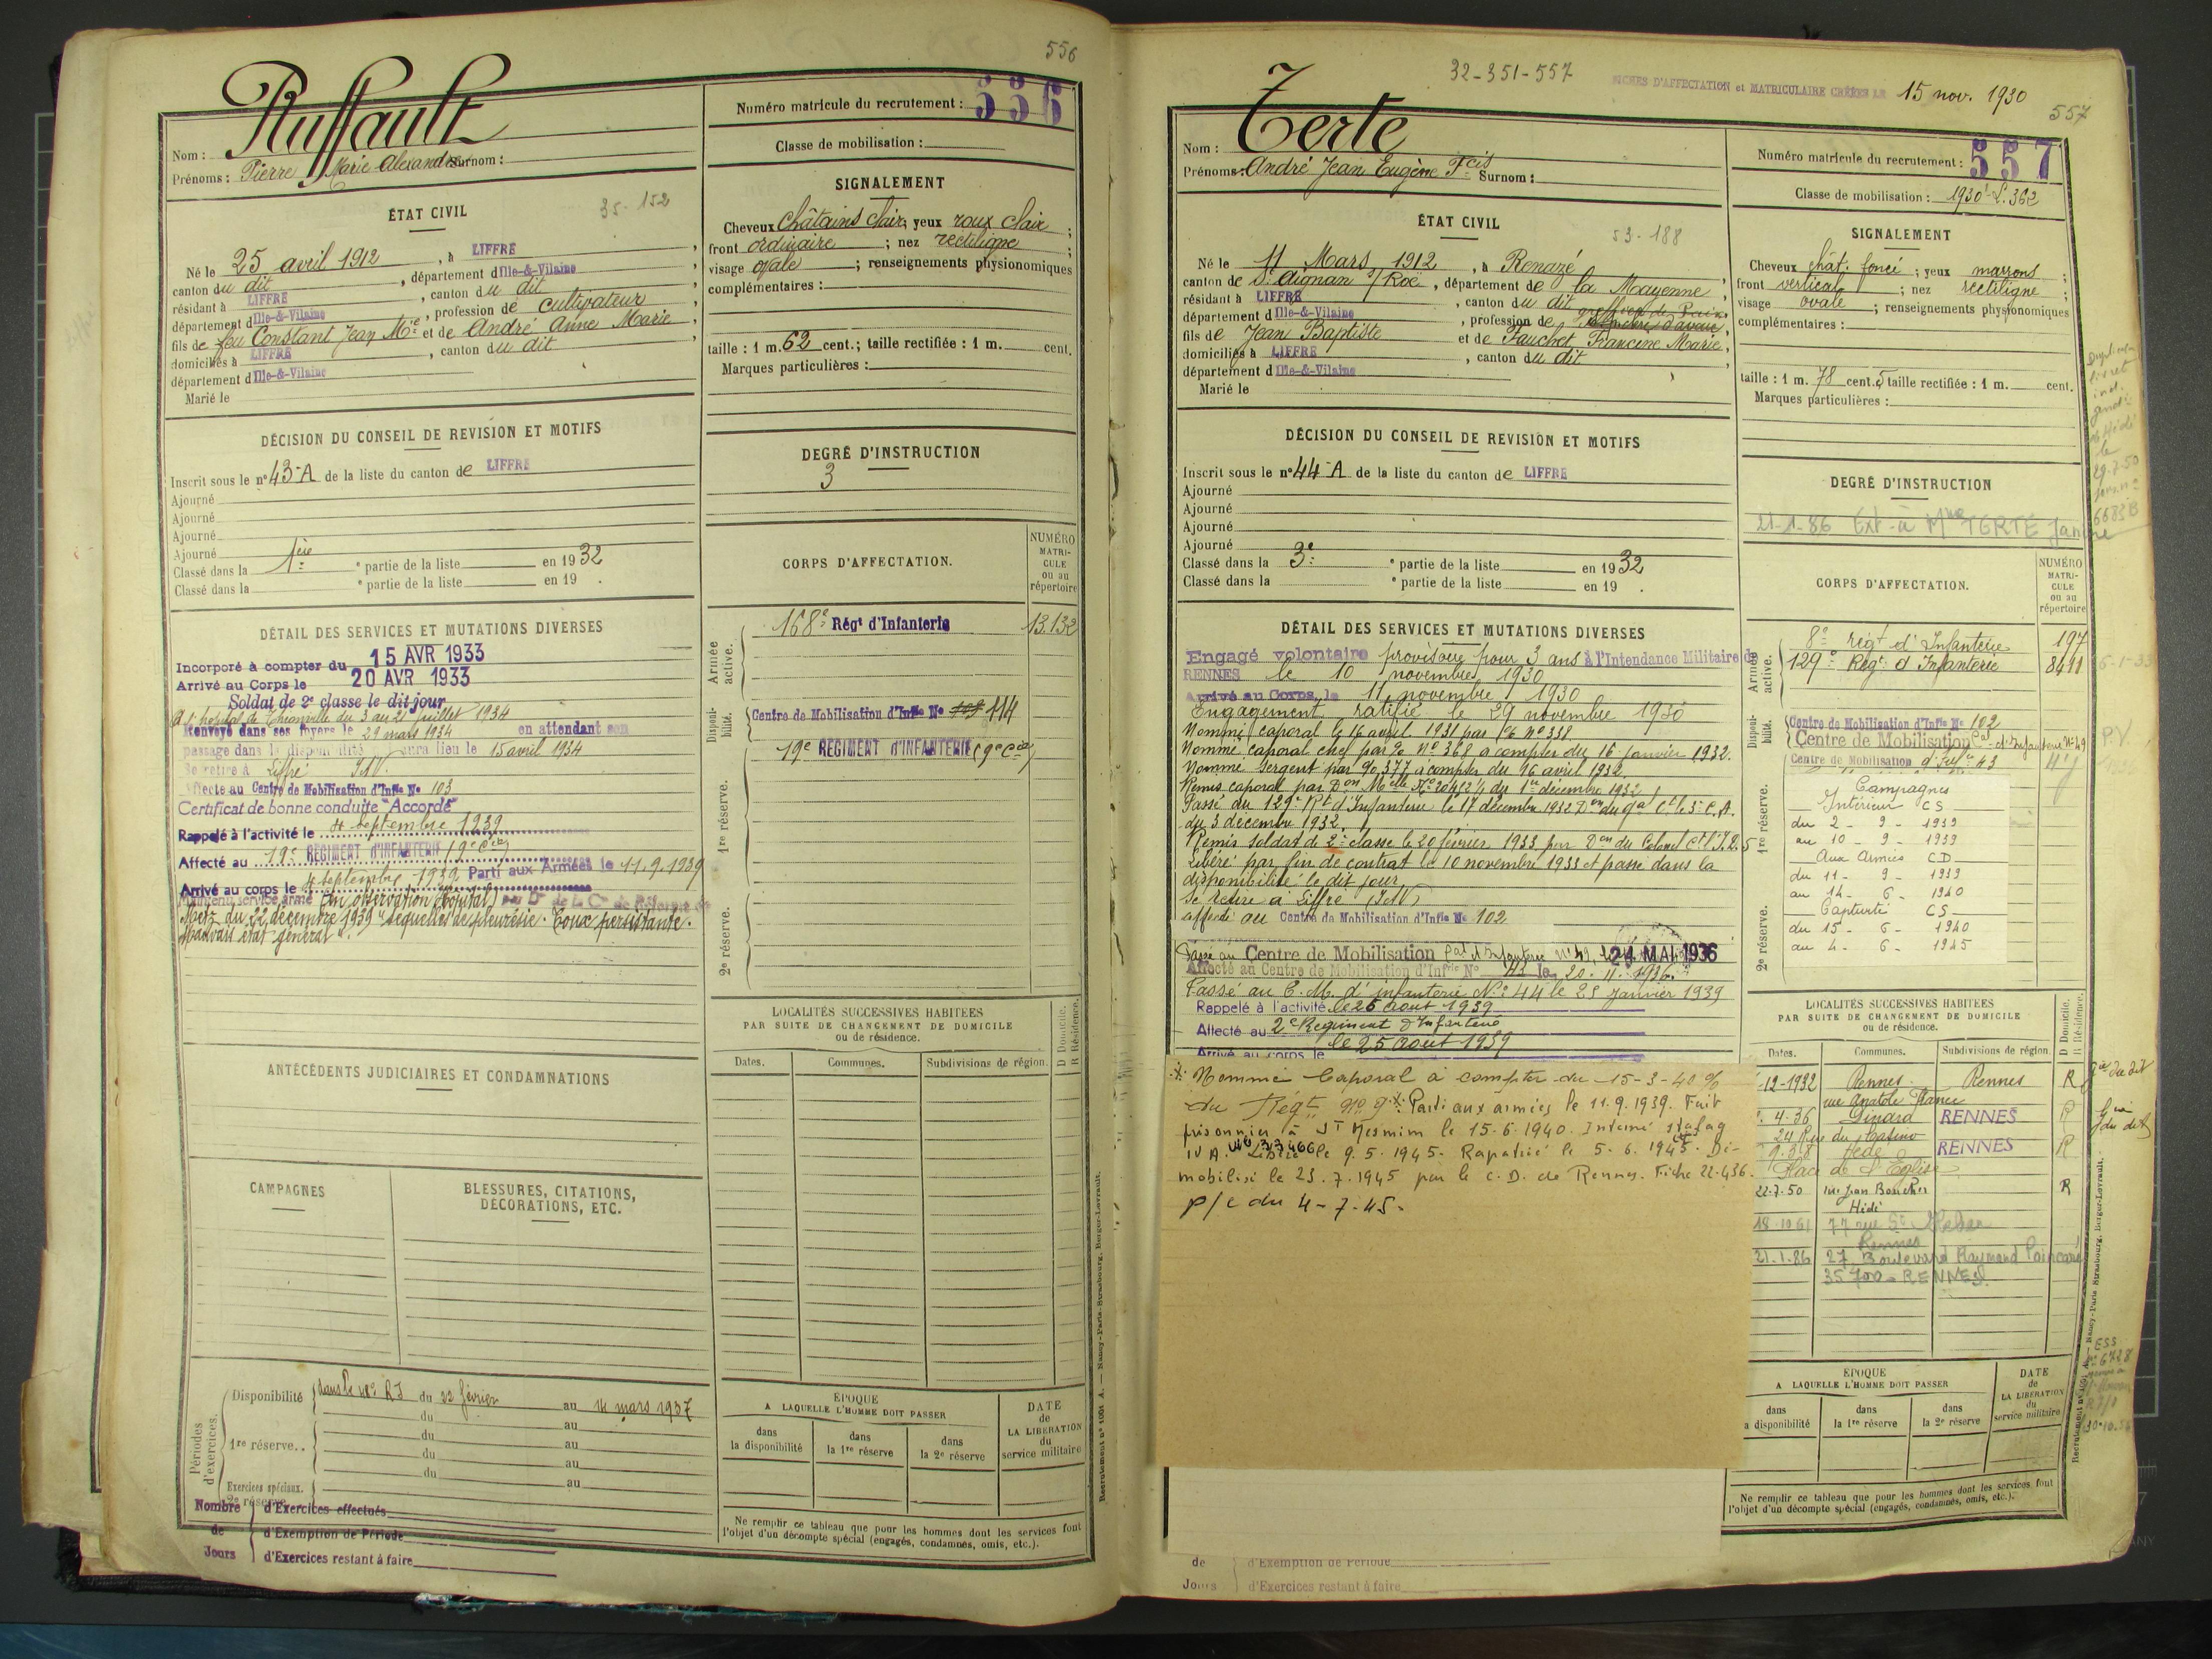 556
Ruffault
Nom :
Prénoms : Pierre Marie Alexandre Surnom :
Numéro matricule du recrutement : 556
Classe de mobilisation :
ÉTAT CIVIL
35-152
Né le 25 avril 1912, à LIFFRÉ,
canton du dit, département d'Ille-&-Vilaine,
résidant à LIFFRÉ, canton du dit,
département d'Ille-&-Vilaine, profession de cultivateur,
fils de feu Constant Jean Mie et de André Anne Marie,
domiciliés à LIFFRÉ, canton du dit,
département d'Ille-&-Vilaine
Marié le
SIGNALEMENT
Cheveux châtains clair; yeux roux clair;
front ordinaire; nez rectiligne;
visage ovale; renseignements physionomiques
complémentaires :
taille : 1 m. 62 cent.; taille rectifiée : 1 m. cent.
Marques particulières :
DÉCISION DU CONSEIL DE REVISION ET MOTIFS
Inscrit sous le n° 43-A de la liste du canton de LIFFRÉ
Ajourné
Ajourné
Ajourné
Ajourné
Classé dans la 1ère ° partie de la liste en 1932
Classé dans la ° partie de la liste en 19 .
DEGRÉ D'INSTRUCTION
3
DÉTAIL DES SERVICES ET MUTATIONS DIVERSES
Incorporé à compter du 15 AVR 1933
Arrivé au Corps le 20 AVR 1933
Soldat de 2e classe le dit jour
à l'hopital de Thionville du 3 au 21 juillet 1934
Renvoyé dans ses foyers le 29 mars 1934 en attendant son
passage dans la disponibilité aura lieu le 15 avril 1934
Se retire à Liffré I&V.
Affecté au Centre de Mobilisation d'Infie No 103
Certificat de bonne conduite "Accordé"
Rappelé à l'activité le 4 septembre 1939
Affecté au 19e REGIMENT D'INFANTERIE (9e Cie)
Arrivé au corps le 4 septembre 1939 Parti aux Armées le 11.9.1939
Maintenu service armé (en observation hopital) par Don de la Con de Réforme de
Metz du 22 décembre 1939 "séquelles de pleurésie. Toux persistante.
Mauvais état général".
CORPS D'AFFECTATION.
NUMÉRO MATRI- CULE ou au répertoire
Armée active.
168e Régt d'Infanterie 13.132
Disponi- bilité.
Centre de Mobilisation d'Infie No 103 114
1re réserve.
19e REGIMENT D'INFANTERIE (9e Cie)
2e réserve.
ANTÉCÉDENTS JUDICIAIRES ET CONDAMNATIONS
LOCALITÉS SUCCESSIVES HABITÉES
PAR SUITE DE CHANGEMENT DE DOMICILE
ou de résidence.
D Domicile.
R Résidence.
Dates. Communes. Subdivisions de région.
CAMPAGNES
BLESSURES, CITATIONS,
DÉCORATIONS, ETC.
Périodes d'exercices.
Disponibilité dans le 41e RI du 22 février au 14 mars 1937
du au
1re réserve.. du au
du au
du au
Exercices spéciaux.
2e réserve
Nombre de Jours
d'Exercices effectués
d'Exemption de Période
d'Exercices restant à faire
ÉPOQUE
A LAQUELLE L'HOMME DOIT PASSER
dans la disponibilité
dans la 1re réserve
dans la 2e réserve
DATE de LA LIBÉRATION du service militaire
Ne remplir ce tableau que pour les hommes dont les services font
l'objet d'un décompte spécial (engagés, condamnés, omis, etc.).
Recrutement n° 1001 A. — Nancy-Paris-Strasbourg, Berger-Levrault.
32-351-557
FICHES D'AFFECTATION et MATRICULAIRE CRÉÉES LE 15 nov. 1930
557
Terte
Nom :
Prénoms : André Jean Eugène Fcis Surnom :
Numéro matricule du recrutement : 557
Classe de mobilisation : 1930
ÉTAT CIVIL
53-188
Né le 11 Mars 1912, à Renazé
canton de St Aignan s/ Roë, département de la Mayenne,
résidant à LIFFRÉ, canton du dit
département d'Ille-&-Vilaine, profession de greffier de Paix
fils de Jean Baptiste et de Fauchet Francine Marie,
domiciliés à LIFFRÉ, canton du dit,
département d'Ille-&-Vilaine
Marié le
SIGNALEMENT
Cheveux chât. foncé; yeux marrons;
front vertical; nez rectiligne;
visage ovale; renseignements physionomiques
complémentaires :
taille : 1 m. 78 cent. 5 taille rectifiée : 1 m. cent.
Marques particulières :
DÉCISION DU CONSEIL DE REVISION ET MOTIFS
Inscrit sous le n° 44-A de la liste du canton de LIFFRÉ
Ajourné
Ajourné
Ajourné
Ajourné
Classé dans la 3e ° partie de la liste en 1932
Classé dans la ° partie de la liste en 19 .
DEGRÉ D'INSTRUCTION
21-1-86 Ext. à Mme TERTE Janine
DÉTAIL DES SERVICES ET MUTATIONS DIVERSES
Engagé volontaire provisoire pour 3 ans à l'Intendance Militaire de
RENNES le 10 novembre 1930
Arrivé au Corps, le 11 novembre 1930
Engagement ratifié le 29 novembre 1930
Nommé caporal le 16 avril 1931 par No 338.
Nommé caporal chef par No 368 à compter du 16 janvier 1932.
Nommé sergent par 377 à compter du 16 avril 1932.
Remis caporal par Don Melle du 1er décembre 1932
Passé du 129e Rt d'Infanterie le 17 décembre 1932 Don du Gal Ct le 3e C.A.
du 3 décembre 1932.
Remis soldat de 2e classe le 20 février 1933 par Don du Colonel
Libéré par fin de contrat le 10 novembre 1933 et passé dans la
disponibilité le dit jour
Se retire à Liffré (I&V)
affecté au Centre de Mobilisation d'Infie No 102
Passé au Centre de Mobilisation Cal d'Infanterie N°49, 24 MAI 1936
Affecté au Centre de Mobilisation d'Infrie N° 43 le 20.11.1936.
Passé au C.M. d'infanterie No 44 le 25 janvier 1939
Rappelé à l'activité le 25 aout 1939
Affecté au 2e Régiment d'Infanterie
Arrivé au corps le le 25 aout 1939
Nommé Caporal à compter du 15-3-40 %
du Régt No 9. Parti aux armées le 11.9.1939. Fait
prisonnier à St Mesmim le 15-6-1940. Interné stalag
IV A. No 33466 Libéré le 9.5.1945. Rapatrié le 5.6.1945. Dé-
mobilisé le 23.7.1945 par le C.D. de Rennes. Fiche 22.436.
p/c du 4-7-45.
CORPS D'AFFECTATION.
NUMÉRO MATRI- CULE ou au répertoire
Armée active.
8e régt d'Infanterie 197
129e Régt d'Infanterie 8411
6-1-33
Disponi- bilité.
Centre de Mobilisation d'Infie No 102
Centre de Mobilisation Cal d'Infanterie N°49
Centre de Mobilisation d'Infie 43
1re réserve.
2e réserve.
Campagnes
Intérieur CS
du 2 - 9 - 1939
au 10 - 9 - 1939
Aux Armées CD
du 11 - 9 - 1939
au 14 - 6 - 1940
Captivité CS
du 15 - 6 - 1940
au 4 - 6 - 1945
LOCALITÉS SUCCESSIVES HABITÉES
PAR SUITE DE CHANGEMENT DE DOMICILE
ou de résidence.
D Domicile.
R Résidence.
Dates. Communes. Subdivisions de région.
-12-1932 Rennes Rennes R
rue Anatole France
4-36 Dinard RENNES R
24 Rue du Casino
9.38 Hédé RENNES R
Place de l'Eglise
22.7.50 rue Jean Boucher R
Hédé
18.10.61 77 rue
Rennes
21.1.86 27 Boulevard Raymond Poincaré
35700 - RENNES.
ÉPOQUE
A LAQUELLE L'HOMME DOIT PASSER
dans a disponibilité
dans la 1re réserve
dans la 2e réserve
DATE de LA LIBÉRATION du service militaire
Ne remplir ce tableau que pour les hommes dont les services font
l'objet d'un décompte spécial (engagés, condamnés, omis, etc.).
de d'Exemption de Période
Jours d'Exercices restant à faire